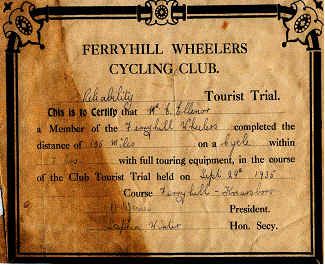 FERRYHILL WHEELERS
CYCLING CLUB.
Reliability Tourist Trial.
This is to Certify that Mr E. Ellenor
a Member of the Ferryhill Wheelers completed the
distance of miles on a Cycle within
hrs. with full touring equipment, in the course
of the Club Tourist Trial held on Sept 29th 1935
Course Ferryhill - Knaresboro
President.
Hon. Secy.